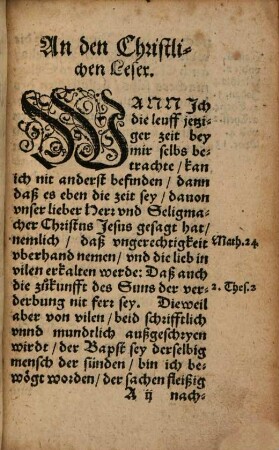 An den Christli-
chen Leser.
WANN Ich
die leuff jetzi-
ger zeit bey
mir selbs be-
trachte/ kan
ich nit anderst befinden/ dann
daß es eben die zeit sey/ dauon
vnser lieber Herr vnd Seligma-
cher Christus Jesus gesagt hat/
nemlich/ daß vngerechtigkeit
vberhand nemen/ vnd die lieb in
vilen erkalten werde: Daß auch
die zůkunfft des Suns der ver-
derbung nit fert sey. Dieweil
aber von vilen/ beid schrifftlich
vnnd mundtlich außgeschryen
wirdt/ der Bapst sey derselbig
mensch der sünden/ bin ich be-
wögt worden/ der sachen fleißig
A ij nach-
Math.24.
2. Thes.2